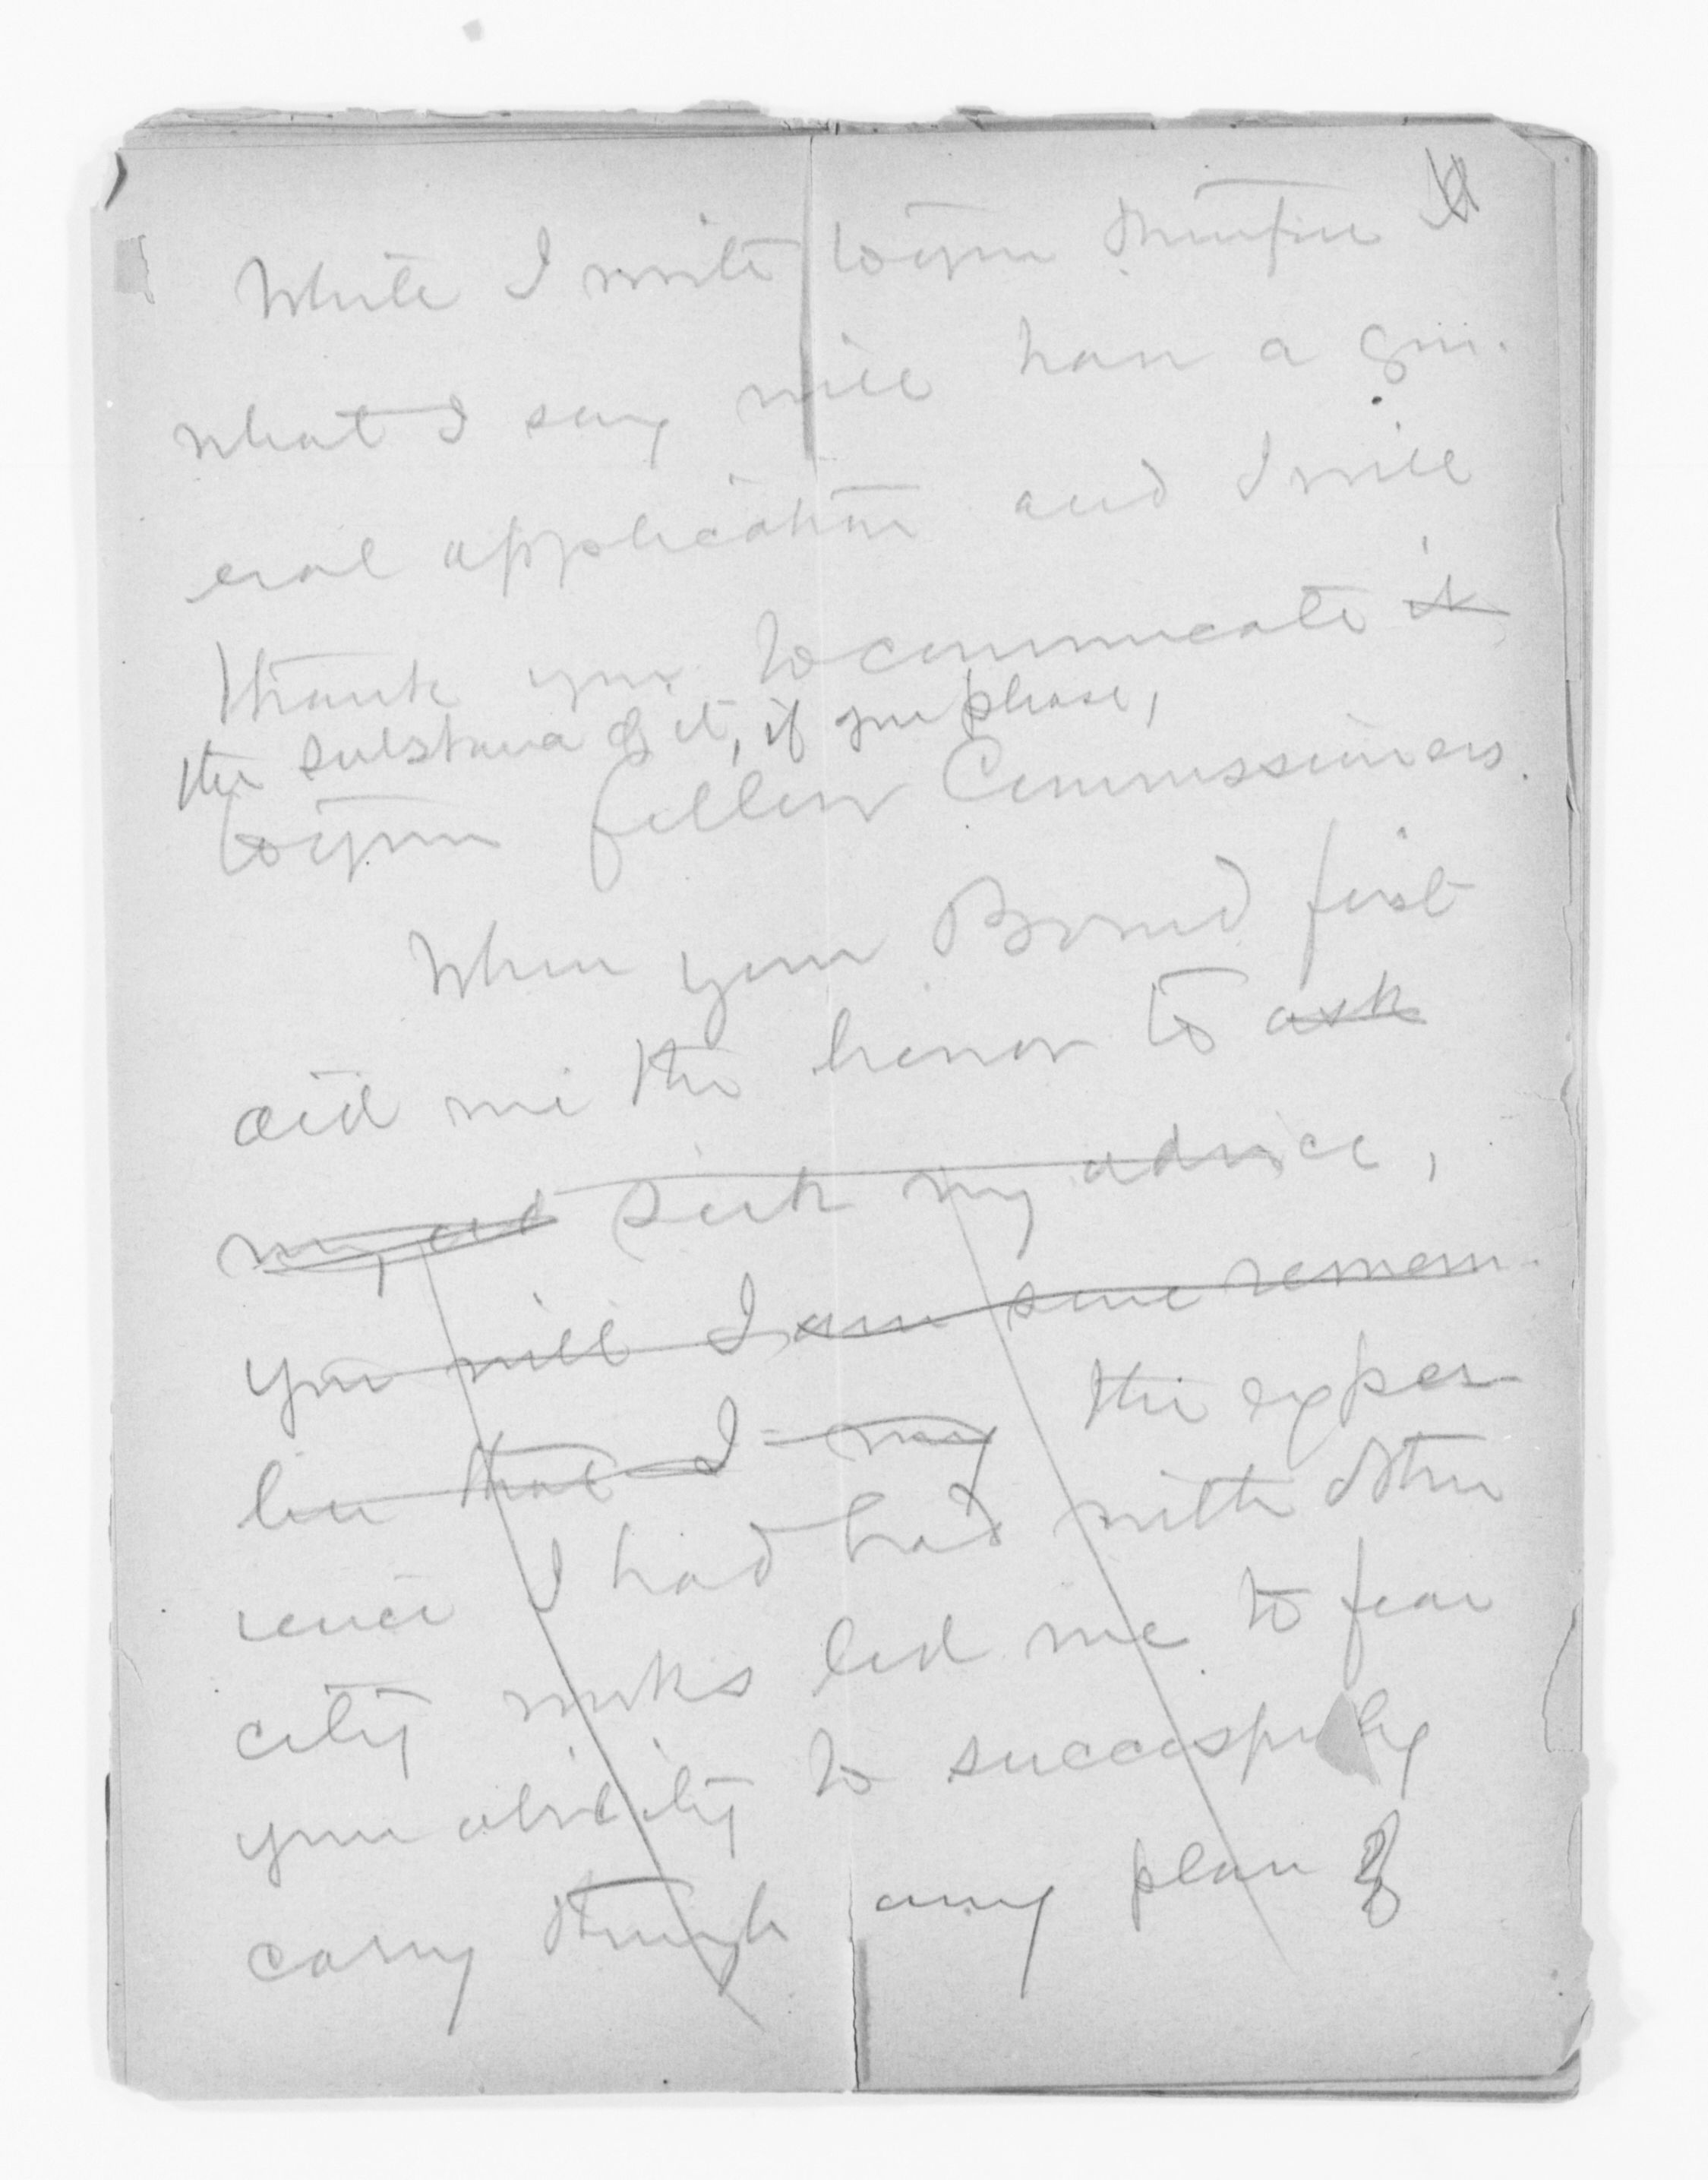 While I write to you therefore
what I say will have a gen-
eral application and I will
thank you to communicate it
the substance of it, if you please,
to your fellow Commissioners.
When your Board first
did me the honor to ask
my ad seek my advice,
you will I am sure remem-
ber that I my the exper-
ience I had had with other
city works led me to fear
your ability to successfully
carry through any plan of